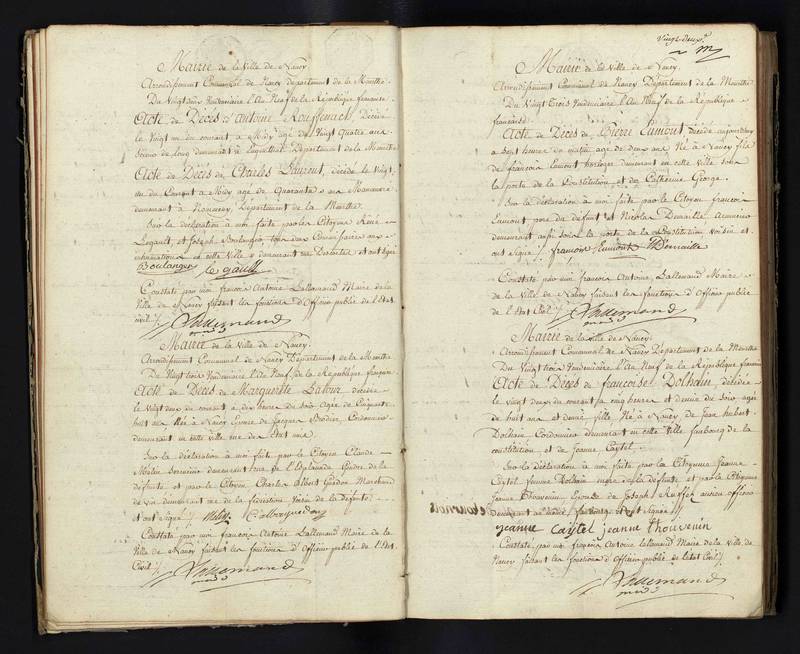 Mairie de la Ville de Nancy.
Arrondissement Communal de Nancy Département de la Meurthe.
Du Vingt deux Vendemiaire l'An Neuf de la République française.
Acte de Décès d'Antoine Décédé
le Vingt un du courant à Midy age de Vingt Quatre ans
demeurant à Département de la Meurthe
Acte de Décès de Charles Laurent, décédé le Vingt
un du Courant à Midy age de Quarante ans Manœuvre
demeurant à Département de la Meurthe.
Sur la déclaration à moi faite par les Citoyens René
Legault et Joseph Boulanger, tous deux Commissaires aux
inhumations de cette Ville y demeurant et ont signé
Boulanger Le gault
Constaté par moi françois Antoine Lallemand Maire de la
Ville de Nancy faisant les fonctions d'Officier public de l'Etat
civil /. Lallemand
Mairie de la Ville de Nancy.
Arrondissement Communal de Nancy Département de la Meurthe
Du Vingt trois Vendemiaire l'An Neuf de la République française
Acte de Décès de Marguerite Latour décédée
le vingt deux du courant à dix heures du soir Agée de Cinquante
huit ans Née à Nancy Epouse de Jacques Cordonnier
demeurant en cette ville rue des
Sur la déclaration à moi faite par le Citoyen Claude
demeurant rue de l'Esplanade Gendre de la
défunte et par le Citoyen Charles Albert Gardon Marchand
de vin demeurant rue de la fédération Voisin de la Défunte
et ont signé /.
Constaté par moi françois Antoine Lallemand Maire de la
Ville de Nancy faisant les fonctions d'Officier public de l'Etat
Civil /. Lallemand
Vingt-deux
Mairie de la Ville de Nancy.
Arrondissement Communal de Nancy Département de la Meurthe
Du Vingt Trois Vendemiaire l'An Neuf de la République
française.
Acte de Décès de Pierre Eumont décédé aujourd'hui
à sept heures du matin agé de deux ans Né à Nancy fils
de françois Eumont horloger demeurant en cette ville sous
la porte de la Constitution et de Catherine George.
Sur la déclaration à moi faite par le Citoyen françois
Eumont pere du défunt et Nicolas
demeurant aussi sous la porte de la Constitution voisin et
ont signé /. françois Eumont
Constaté par moi françois Antoine Lallemand Maire
de la Ville de Nancy faisant les fonctions d'Officier public
de l'Etat Civil /. Lallemand
Mairie de la Ville de Nancy.
Arrondissement Communal de Nancy Département de la Meurthe
Du Vingt trois Vendemiaire l'An Neuf de la République française
Acte de Décès de françoise Dolhain décédée
le vingt deux du courant à cinq heures et demie du soir agée
de huit ans et demie fille Née à Nancy de Jean hubert
Dolhain Cordonnier demeurant en cette Ville faubourg de la
constitution et de Jeanne Caytel.
Sur la déclaration à moi faite par la Citoyenne Jeanne
Caytel femme Dolhain mere de la défunte et par la Citoyenne
Jeanne Thouvenin Epouse de Joseph ancien officier
demeurant faubourg et ont signé /.
jeanne Caytel jeanne thouvenin
Constaté par moi françois Antoine Lallemand Maire de la Ville de
Nancy faisant les fonctions d'Officier public de l'etat Civil /.
Lallemand